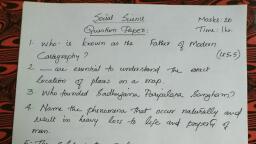 Social Science
Marks: 20
Question Paper:
Time: 1hr.
1. Who is known as the Father of Modern
Catography? (4x5=5)
2. — are essential to understand the exact
location of places on a map.
3. Who founded Sadhujana Paripalana Sangham?
4. Name the phenomena that occur naturally and
result in heavy loss to life and property of
man.